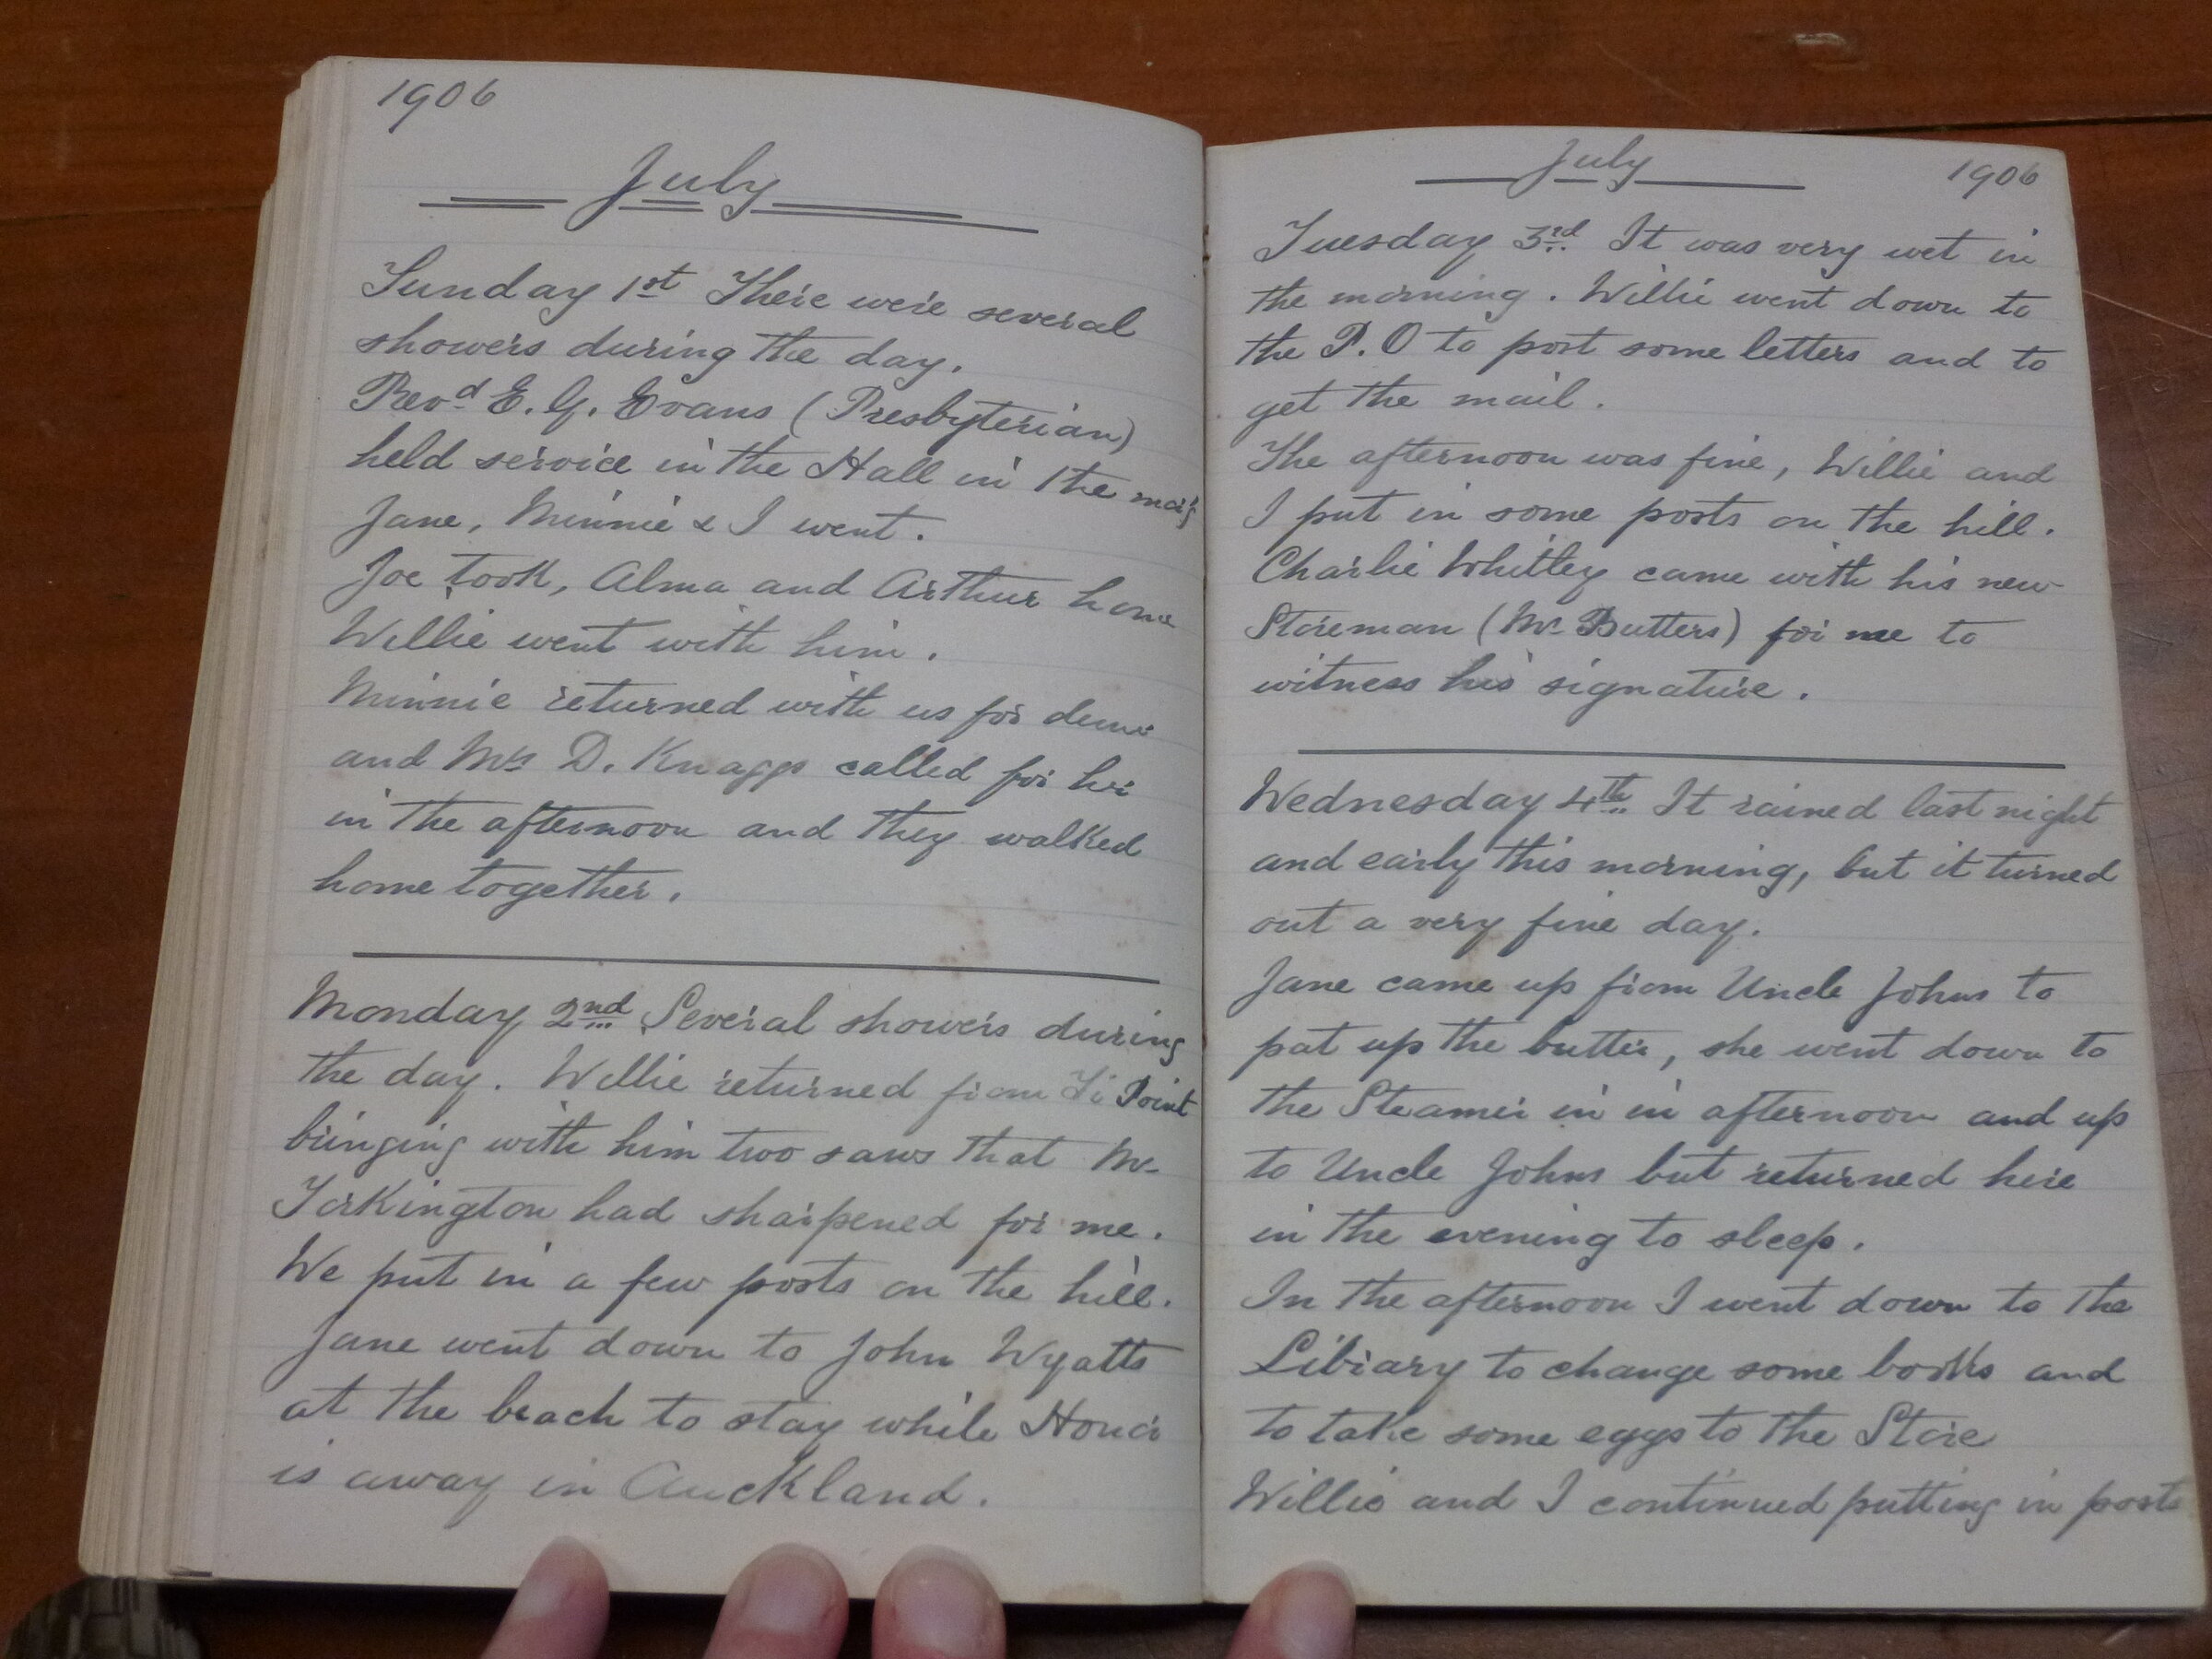 1906
July
Sunday 1st There were several
showers during the day.
Revd E. G. Evans (Presbyterian)
held service in the Hall in the
Jane, Minnie & I went.
Joe took, Alma and Arthur home
Willie went with him.
Minnie returned with us for
and Mrs D. Knaggs called for her
in the afternoon and they walked
home together.
Monday 2nd Several showers during
the day. Willie returned from Ti Point
bringing with him two saws that Mr
Torkington had sharpened for me.
We put in a few posts on the hill.
Jane went down to John Wyatts
at the beach to stay while
is away in Auckland.
July
1906
Tuesday 3rd It was very wet in
the morning. Willie went down to
the P.O to post some letters and to
get the mail.
The afternoon was fine, Willie and
I put in some posts on the hill.
Charlie Whitley came with his new
Storeman (Mr Butters) for me to
witness his signature.
Wednesday 4th It rained last night
and early this morning, but it turned
out a very fine day.
Jane came up from Uncle Johns to
pat up the butter, she went down to
the Steamer in in afternoon and up
to Uncle Johns but returned here
in the evening to sleep.
In the afternoon I went down to the
Library to change some books and
to take some eggs to the Store
Willie and I continued putting in posts